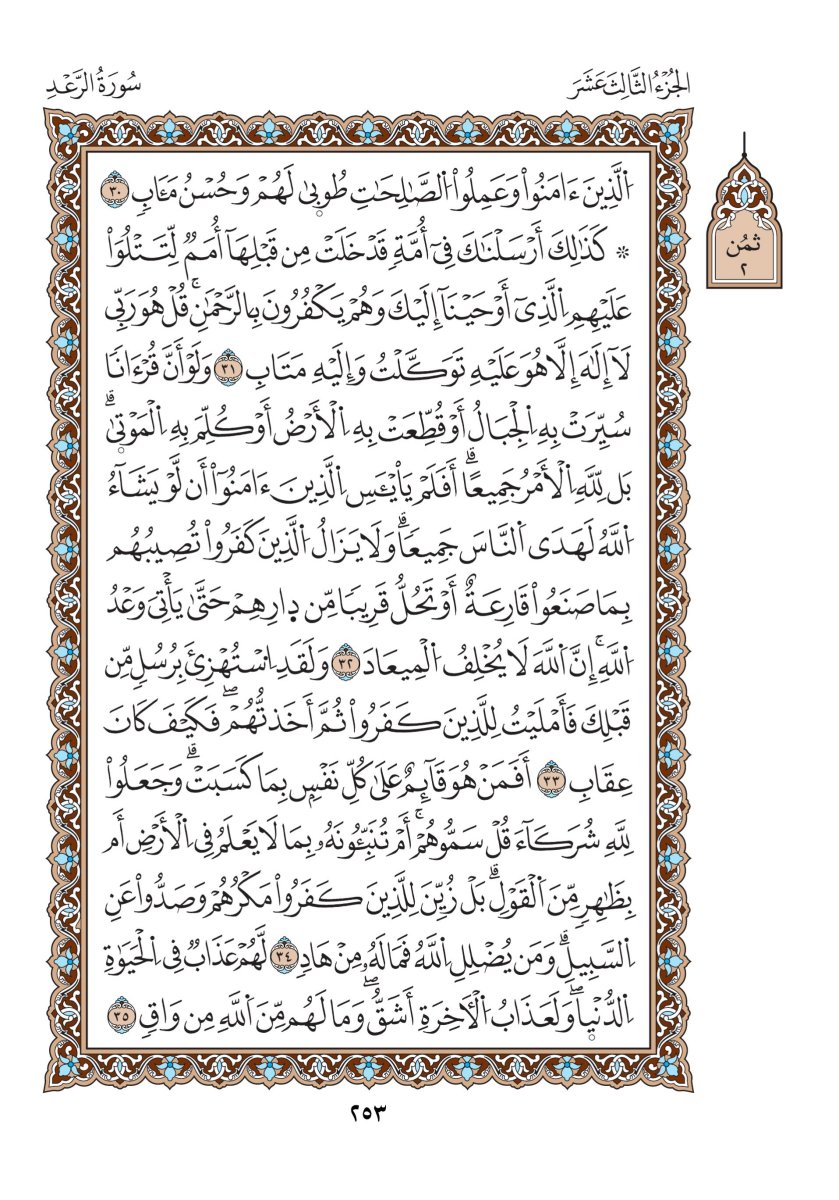 الجُزْءُ الثَّالِثَ عَشَرَ
سُورَةُ الرَّعْدِ
اَ۬لَّذِينَ ءَامَنُواْ وَعَمِلُواْ اُ۬لصَّٰلِحَٰتِ طُوب۪ىٰ لَهُمْ وَحُسْنُ مَـَٔابٖ ٣٠
۞ كَذَٰلِكَ أَرْسَلْنَٰكَ فِيٓ أُمَّةٖ قَدْ خَلَتْ مِن قَبْلِهَآ أُمَمٞ لِّتَتْلُوَاْ
عَلَيْهِمِ اِ۬لَّذِيٓ أَوْحَيْنَآ إِلَيْكَ وَهُمْ يَكْفُرُونَ بِالرَّحْمَٰنِۚ قُلْ هُوَ رَبِّي
لَآ إِلَٰهَ إِلَّا هُوَ عَلَيْهِ تَوَكَّلْتُ وَإِلَيْهِ مَتَابِ ٣١ وَلَوْ أَنَّ قُرْءَانٗا
سُيِّرَتْ بِهِ اِ۬لْجِبَالُ أَوْ قُطِّعَتْ بِهِ اِ۬لْأَرْضُ أَوْ كُلِّمَ بِهِ اِ۬لْمَوْت۪ىٰۗ
بَل لِّلَّهِ اِ۬لْأَمْرُ جَمِيعًاۗ أَفَلَمْ يَاْيْـَٔسِ اِ۬لَّذِينَ ءَامَنُوٓاْ أَن لَّوْ يَشَآءُ
اُ۬للَّهُ لَهَدَى اَ۬لنَّاسَ جَمِيعٗاۗ وَلَا يَزَالُ اُ۬لَّذِينَ كَفَرُواْ تُصِيبُهُم
بِمَا صَنَعُواْ قَارِعَةٌ أَوْ تَحُلُّ قَرِيبٗا مِّن د۪ارِهِمْ حَتَّىٰ يَأْتِيَ وَعْدُ
اُ۬للَّهِۚ إِنَّ اَ۬للَّهَ لَا يُخْلِفُ اُ۬لْمِيعَادَ ٣٢ وَلَقَدِ اِ۟سْتُهْزِئَ بِرُسُلٖ مِّن
قَبْلِكَ فَأَمْلَيْتُ لِلَّذِينَ كَفَرُواْ ثُمَّ أَخَذتُّهُمْۖ فَكَيْفَ كَانَ
عِقَابِ ٣٣ أَفَمَنْ هُوَ قَآئِمٌ عَلَىٰ كُلِّ نَفْسِۭ بِمَا كَسَبَتْۗ وَجَعَلُواْ
لِلَّهِ شُرَكَآءَ قُلْ سَمُّوهُمْۚ أَمْ تُنَبِّـُٔونَهُۥ بِمَا لَا يَعْلَمُ فِي اِ۬لْأَرْضِ أَم
بِظَٰهِرٖ مِّنَ اَ۬لْقَوْلِۗ بَلْ زُيِّنَ لِلَّذِينَ كَفَرُواْ مَكْرُهُمْ وَصَدُّواْ عَنِ
اِ۬لسَّبِيلِۗ وَمَن يُضْلِلِ اِ۬للَّهُ فَمَا لَهُۥ مِنْ هَادٖ ٣٤ لَّهُمْ عَذَابٞ فِي اِ۬لْحَيَوٰةِ
اِ۬لدُّنْي۪اۖ وَلَعَذَابُ اُ۬لْأٓخِرَةِ أَشَقُّۖ وَمَا لَهُم مِّنَ اَ۬للَّهِ مِن وَاقٖ ٣٥
ثمُن
٢
٢٥٣